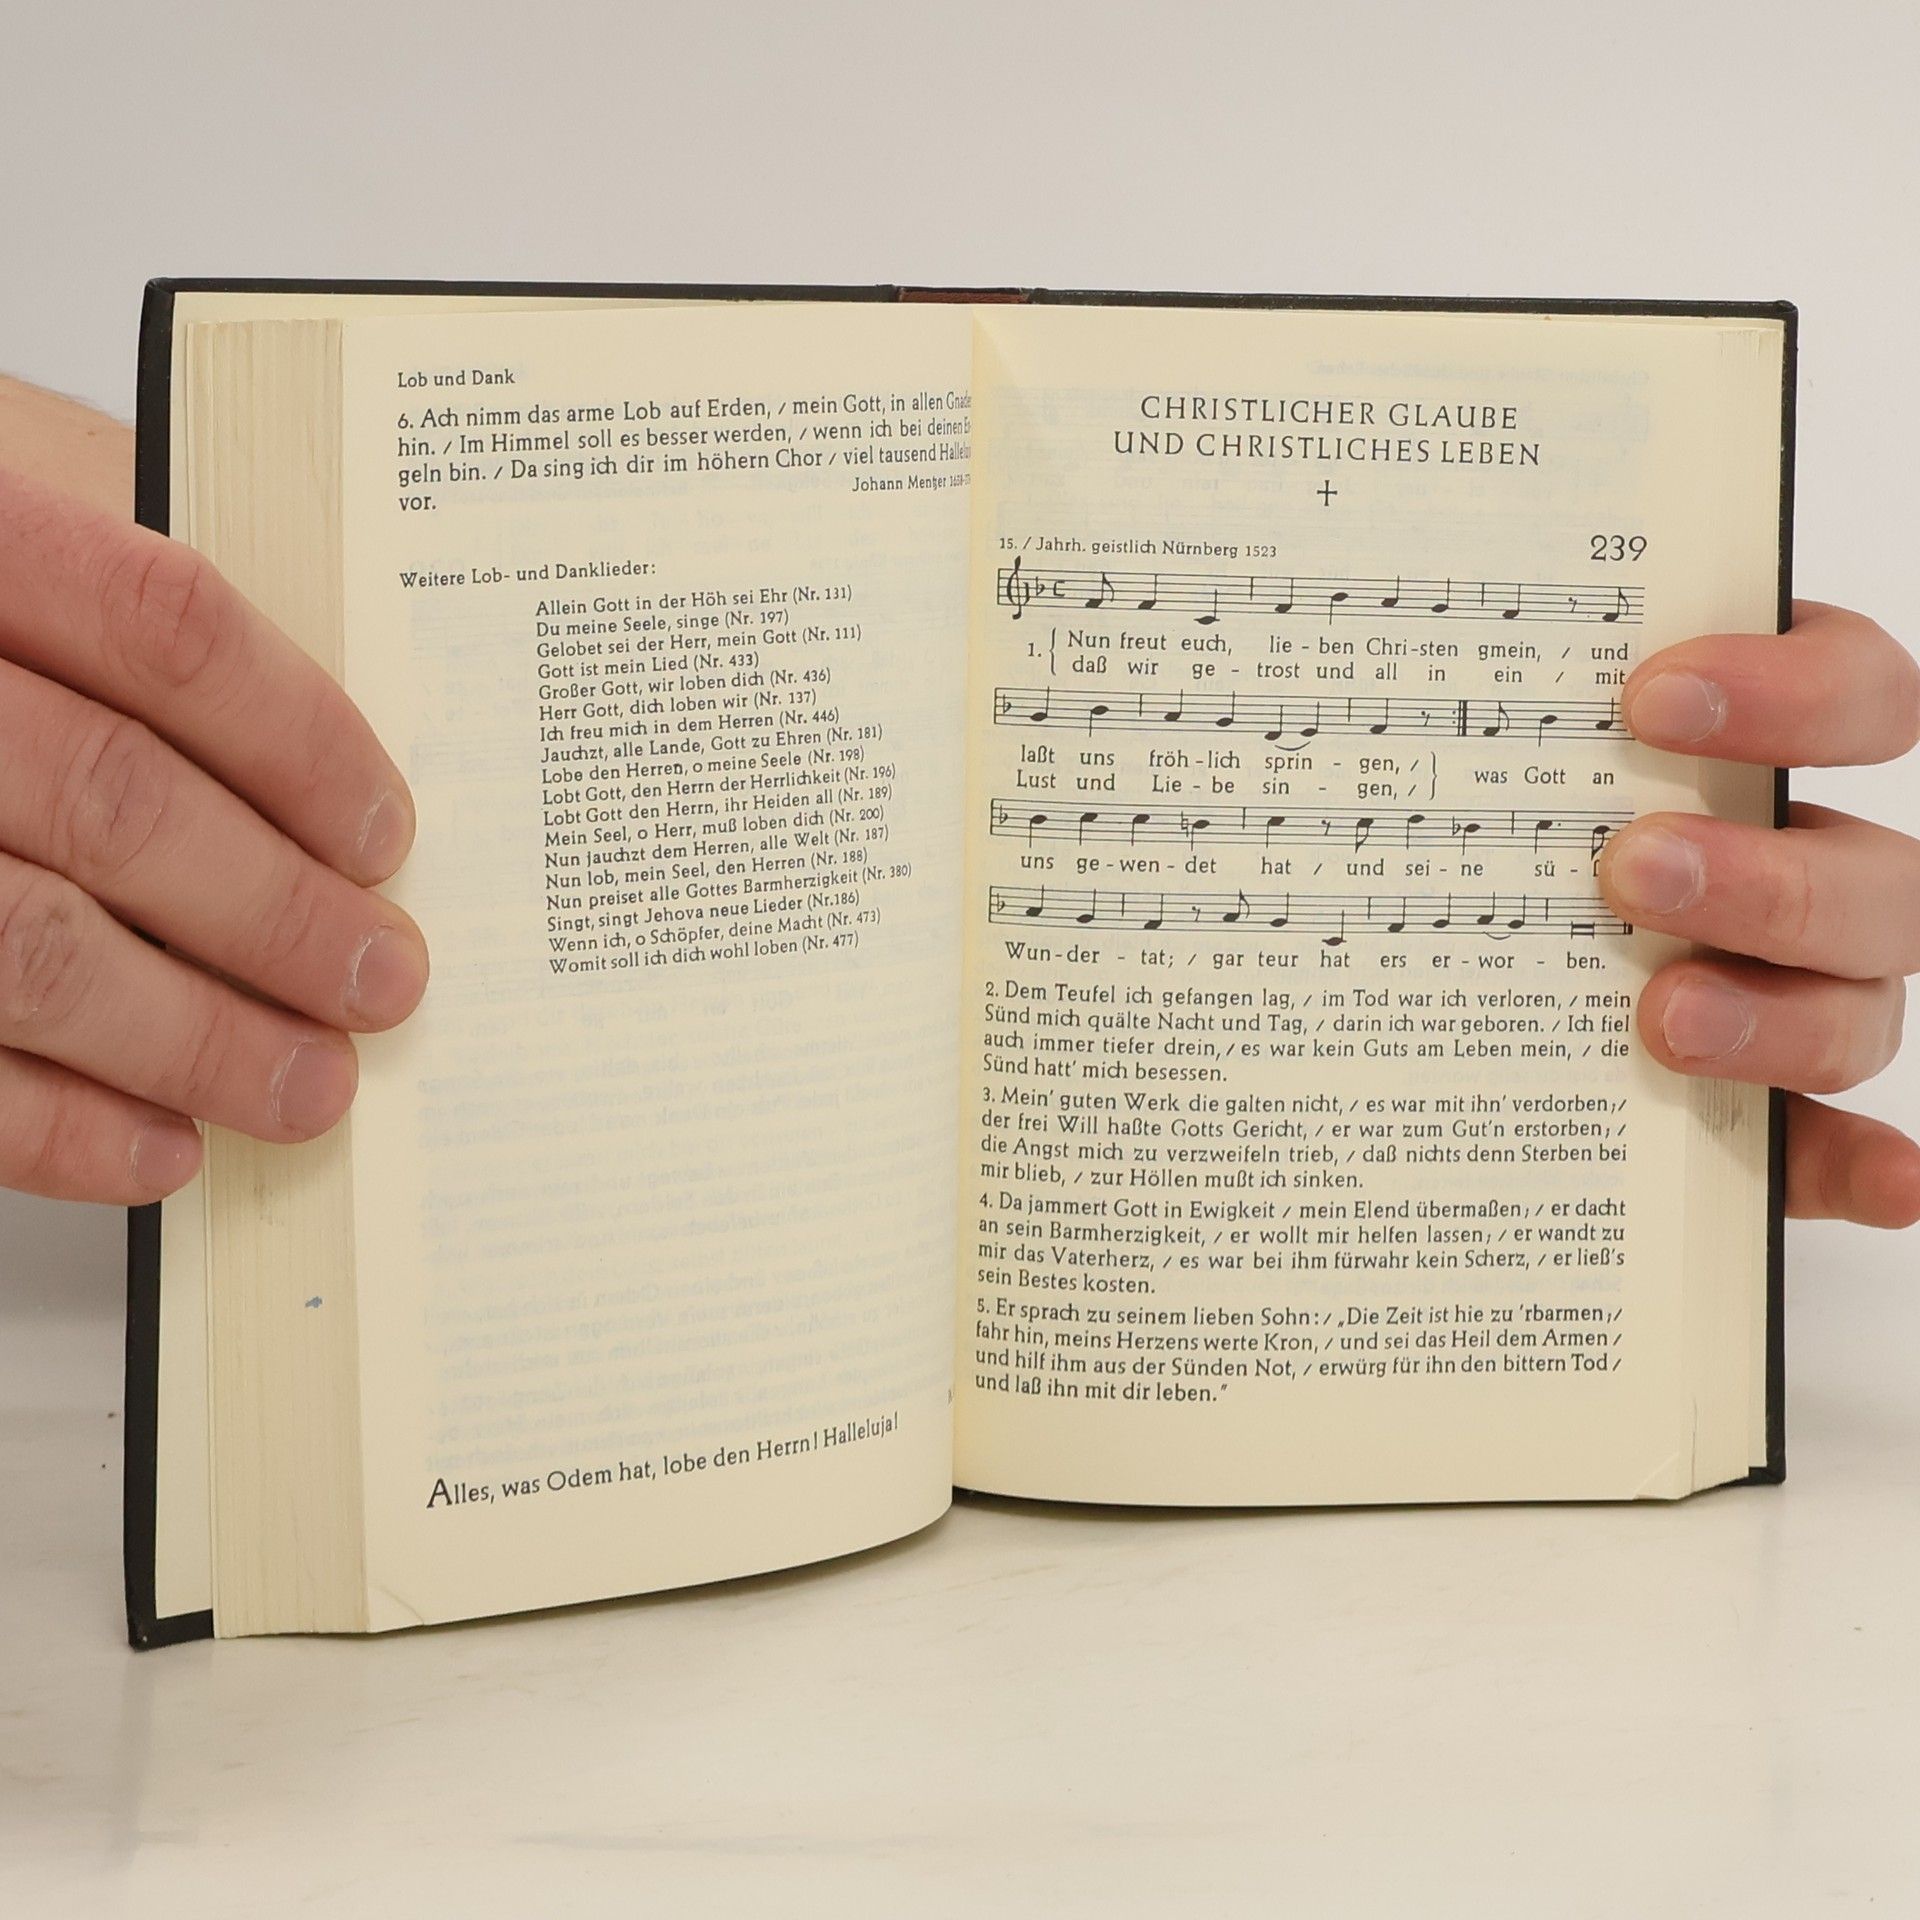 Lob und Dank
6. Ach nimm das arme Lob auf Erden, / mein Gott, in allen
hin. / Im Himmel soll es besser werden, / wenn ich bei deinen
geln bin. / Da sing ich dir im höhern Chor / viel tausend
vor.
Johann Mentzer
Weitere Lob- und Danklieder:
Allein Gott in der Höh sei Ehr (Nr. 131)
Du meine Seele, singe (Nr. 197)
Gelobet sei der Herr, mein Gott (Nr. 111)
Gott ist mein Lied (Nr. 433)
Großer Gott, wir loben dich (Nr. 436)
Herr Gott, dich loben wir (Nr. 137)
Ich freu mich in dem Herren (Nr. 446)
Jauchzt, alle Lande, Gott zu Ehren (Nr. 181)
Lobe den Herren, o meine Seele (Nr. 198)
Lobt Gott, den Herrn der Herrlichkeit (Nr. 196)
Lobt Gott den Herrn, ihr Heiden all (Nr. 189)
Mein Seel, o Herr, muß loben dich (Nr. 200)
Nun jauchzt dem Herren, alle Welt (Nr. 187)
Nun lob, mein Seel, den Herren (Nr. 188)
Nun preiset alle Gottes Barmherzigkeit (Nr. 380)
Singt, singt Jehova neue Lieder (Nr.186)
Wenn ich, o Schöpfer, deine Macht (Nr. 473)
Womit soll ich dich wohl loben (Nr. 477)
Alles, was Odem hat, lobe den Herrn! Halleluja!
CHRISTLICHER GLAUBE
UND CHRISTLICHES LEBEN
15. / Jahrh. geistlich Nürnberg 1523
239
1. Nun freut euch, lie - ben Chri-sten gmein, / und
daß wir ge - trost und all in ein / mit
laßt uns fröh - lich sprin - gen, / was Gott an
Lust und Lie - be sin - gen, /
uns ge - wen - det hat / und sei - ne sü -
Wun - der - tat; / gar teur hat ers er - wor - ben.
2. Dem Teufel ich gefangen lag, / im Tod war ich verloren, / mein
Sünd mich quälte Nacht und Tag, / darin ich war geboren. / Ich fiel
auch immer tiefer drein, / es war kein Guts am Leben mein, / die
Sünd hatt' mich besessen.
3. Mein' guten Werk die galten nicht, / es war mit ihn' verdorben; /
der frei Will haßte Gotts Gericht, / er war zum Gut'n erstorben; /
die Angst mich zu verzweifeln trieb, / daß nichts denn Sterben bei
mir blieb, / zur Höllen mußt ich sinken.
4. Da jammert Gott in Ewigkeit / mein Elend übermaßen; / er dacht
an sein Barmherzigkeit, / er wollt mir helfen lassen; / er wandt zu
mir das Vaterherz, / es war bei ihm fürwahr kein Scherz, / er ließ's
sein Bestes kosten.
5. Er sprach zu seinem lieben Sohn: / „Die Zeit ist hie zu 'rbarmen; /
fahr hin, meins Herzens werte Kron, / und sei das Heil dem Armen /
und hilf ihm aus der Sünden Not, / erwürg für ihn den bittern Tod /
und laß ihn mit dir leben.“